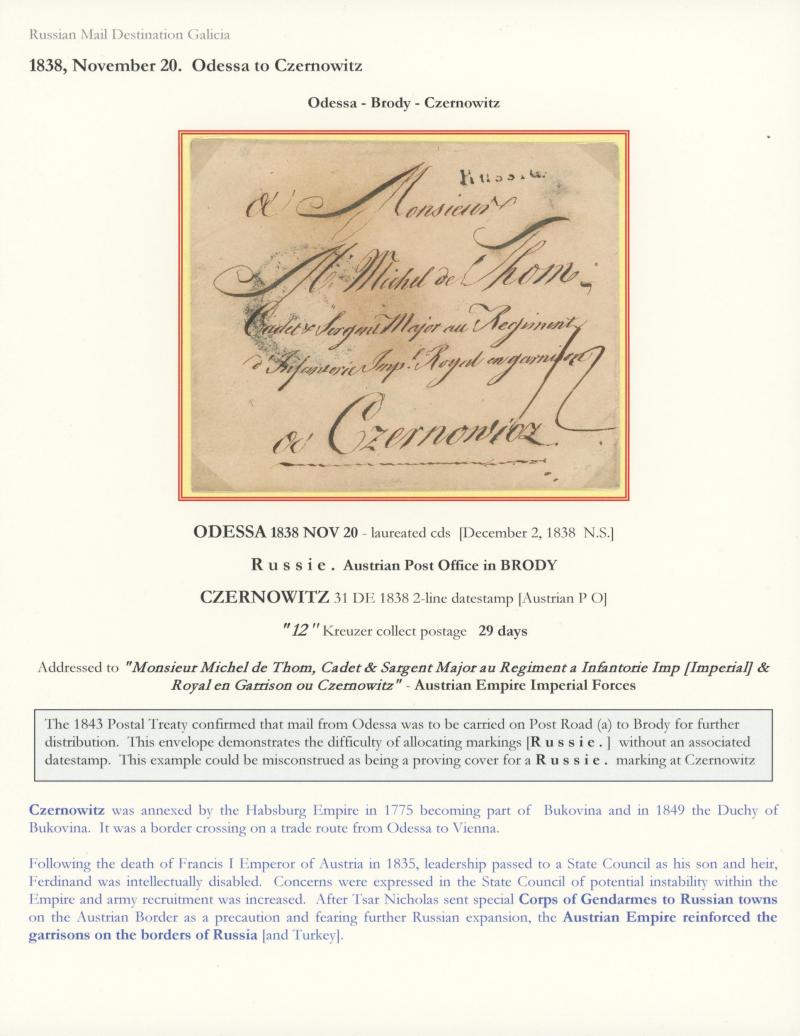 Russian Mail Destination Galicia
1838, November 20. Odessa to Czernowitz
Odessa - Brody - Czernowitz
Russie.
a Monsieur
M. Michel de Thom.
Cadet & Sergent Major au Regiment
d'Infanterie Imp.l Royal en garnison
12
à Czernowicz
ODESSA 1838 NOV 20 - laureated cds [December 2, 1838 N.S.]
R u s s i e . Austrian Post Office in BRODY
CZERNOWITZ 31 DE 1838 2-line datestamp [Austrian P O]
"12" Kreuzer collect postage 29 days
Addressed to "Monsieur Michel de Thom, Cadet & Sargent Major au Regiment a Infantorie Imp [Imperial] &
Royal en Garrison ou Czernowitz" - Austrian Empire Imperial Forces
The 1843 Postal Treaty confirmed that mail from Odessa was to be carried on Post Road (a) to Brody for further
distribution. This envelope demonstrates the difficulty of allocating markings [R u s s i e . ] without an associated
datestamp. This example could be misconstrued as being a proving cover for a R u s s i e . marking at Czernowitz
Czernowitz was annexed by the Habsburg Empire in 1775 becoming part of Bukovina and in 1849 the Duchy of
Bukovina. It was a border crossing on a trade route from Odessa to Vienna.
Following the death of Francis I Emperor of Austria in 1835, leadership passed to a State Council as his son and heir,
Ferdinand was intellectually disabled. Concerns were expressed in the State Council of potential instability within the
Empire and army recruitment was increased. After Tsar Nicholas sent special Corps of Gendarmes to Russian towns
on the Austrian Border as a precaution and fearing further Russian expansion, the Austrian Empire reinforced the
garrisons on the borders of Russia [and Turkey].